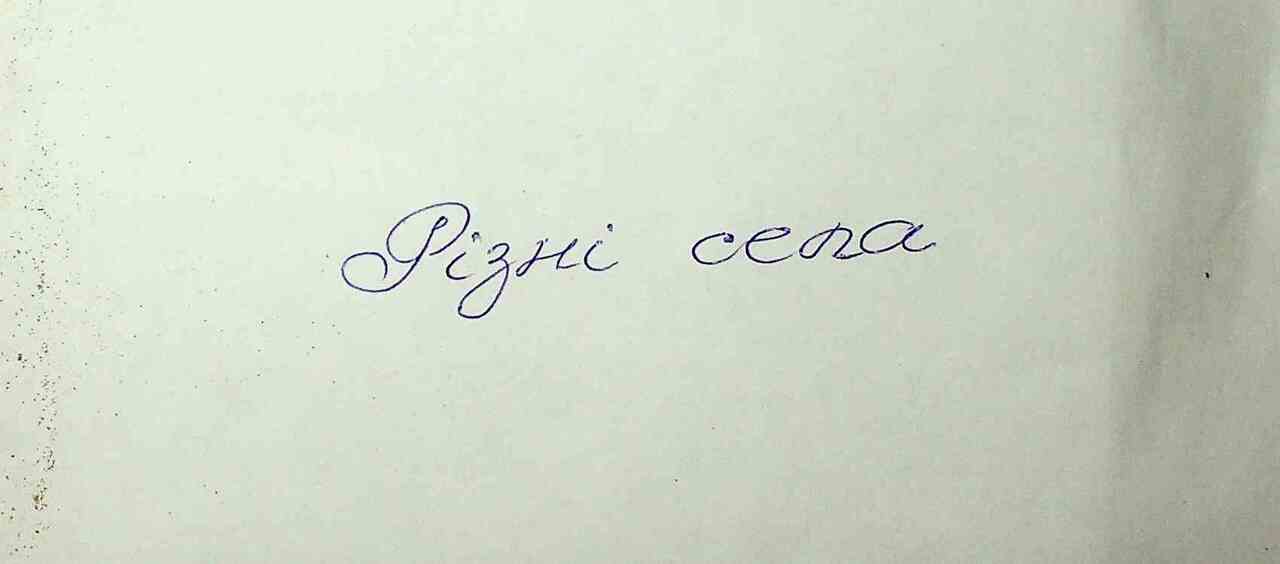 Різні села